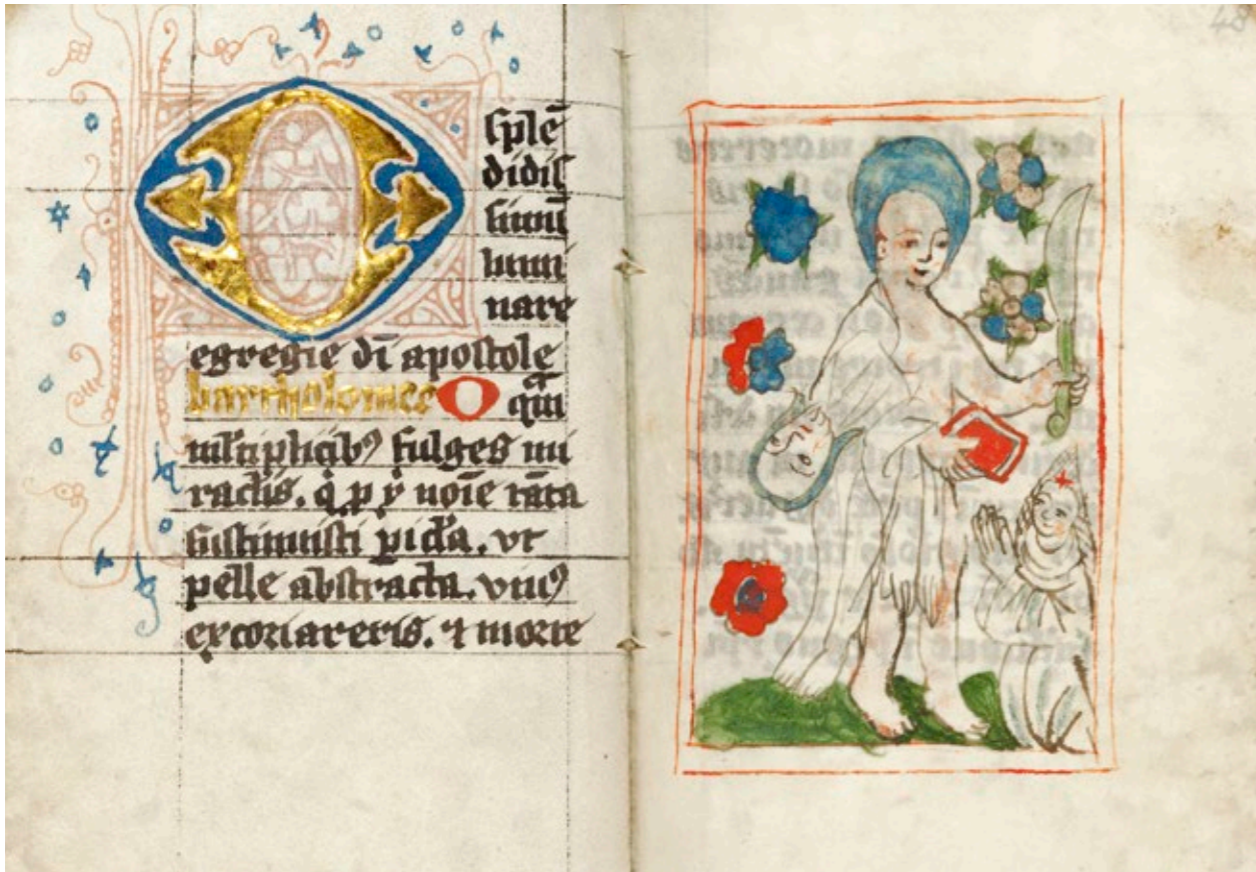 O splē
didis
simū
lumi
nare
egregie dī apostole
bartholomee O qui
ml̄tiplicib⁹ fulges mi
racl̄is. q̇ p noīe tāta
sustinuisti picl̄a. vt
pelle abstracta. viu⁹
excoriareris. ⁊ morte
48